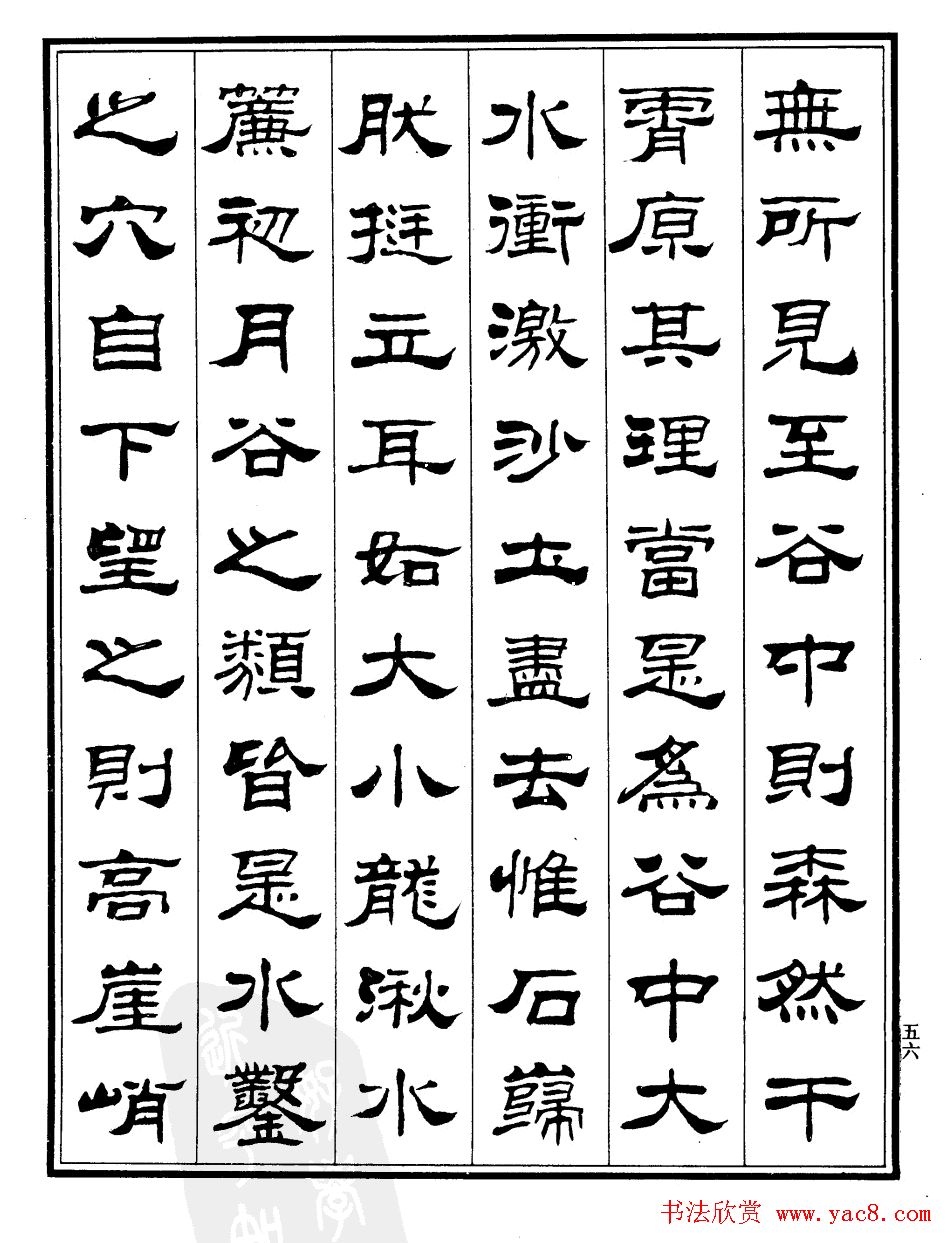 無所見至谷中則森然干
霄原其理當是爲谷中大
水衝激沙土盡去惟石巋
肰挺立耳如大小龍湫水
簾初月谷之類皆是水鑿
之穴自下望之則高崖峭
五六
书法欣赏 www.yac8.com